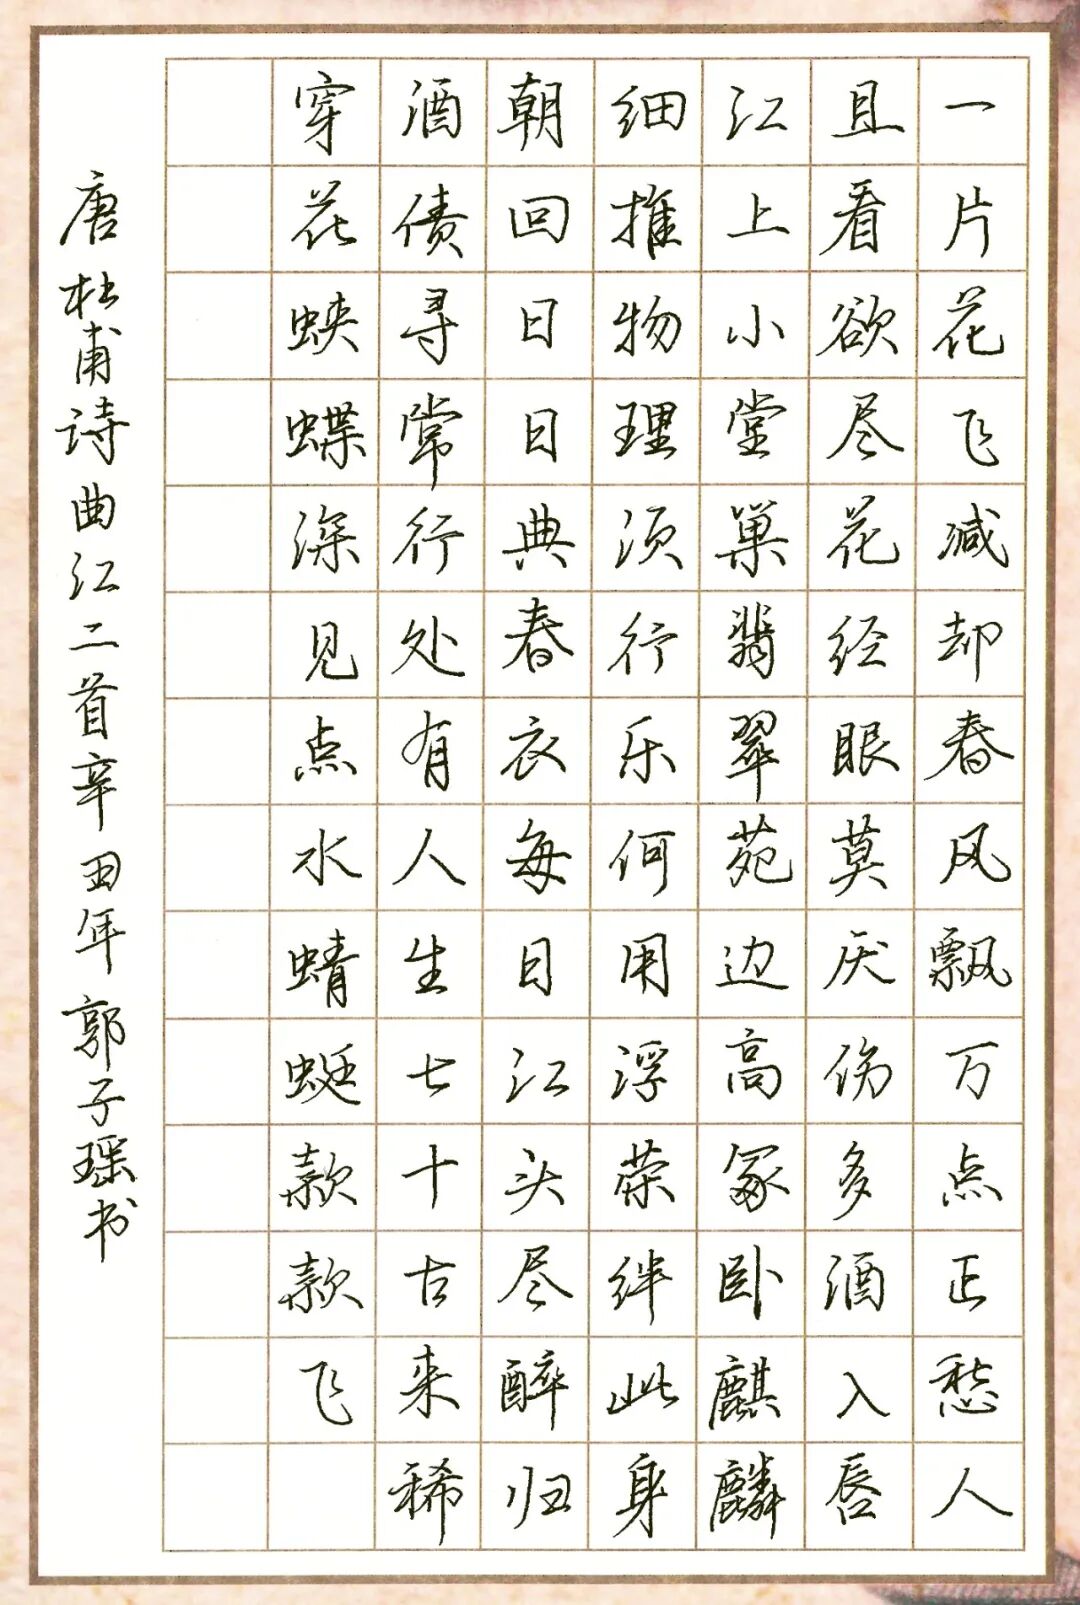 一片花飞减却春风飘万点正愁人
且看欲尽花经眼莫厌伤多酒入唇
江上小堂巢翡翠苑边高冢卧麒麟
细推物理须行乐何用浮荣绊此身
朝回日日典春衣每日江头尽醉归
酒债寻常行处有人生七十古来稀
穿花蛱蝶深见点水蜻蜓款款飞
唐杜甫诗曲江二首辛田年郭子瑶书